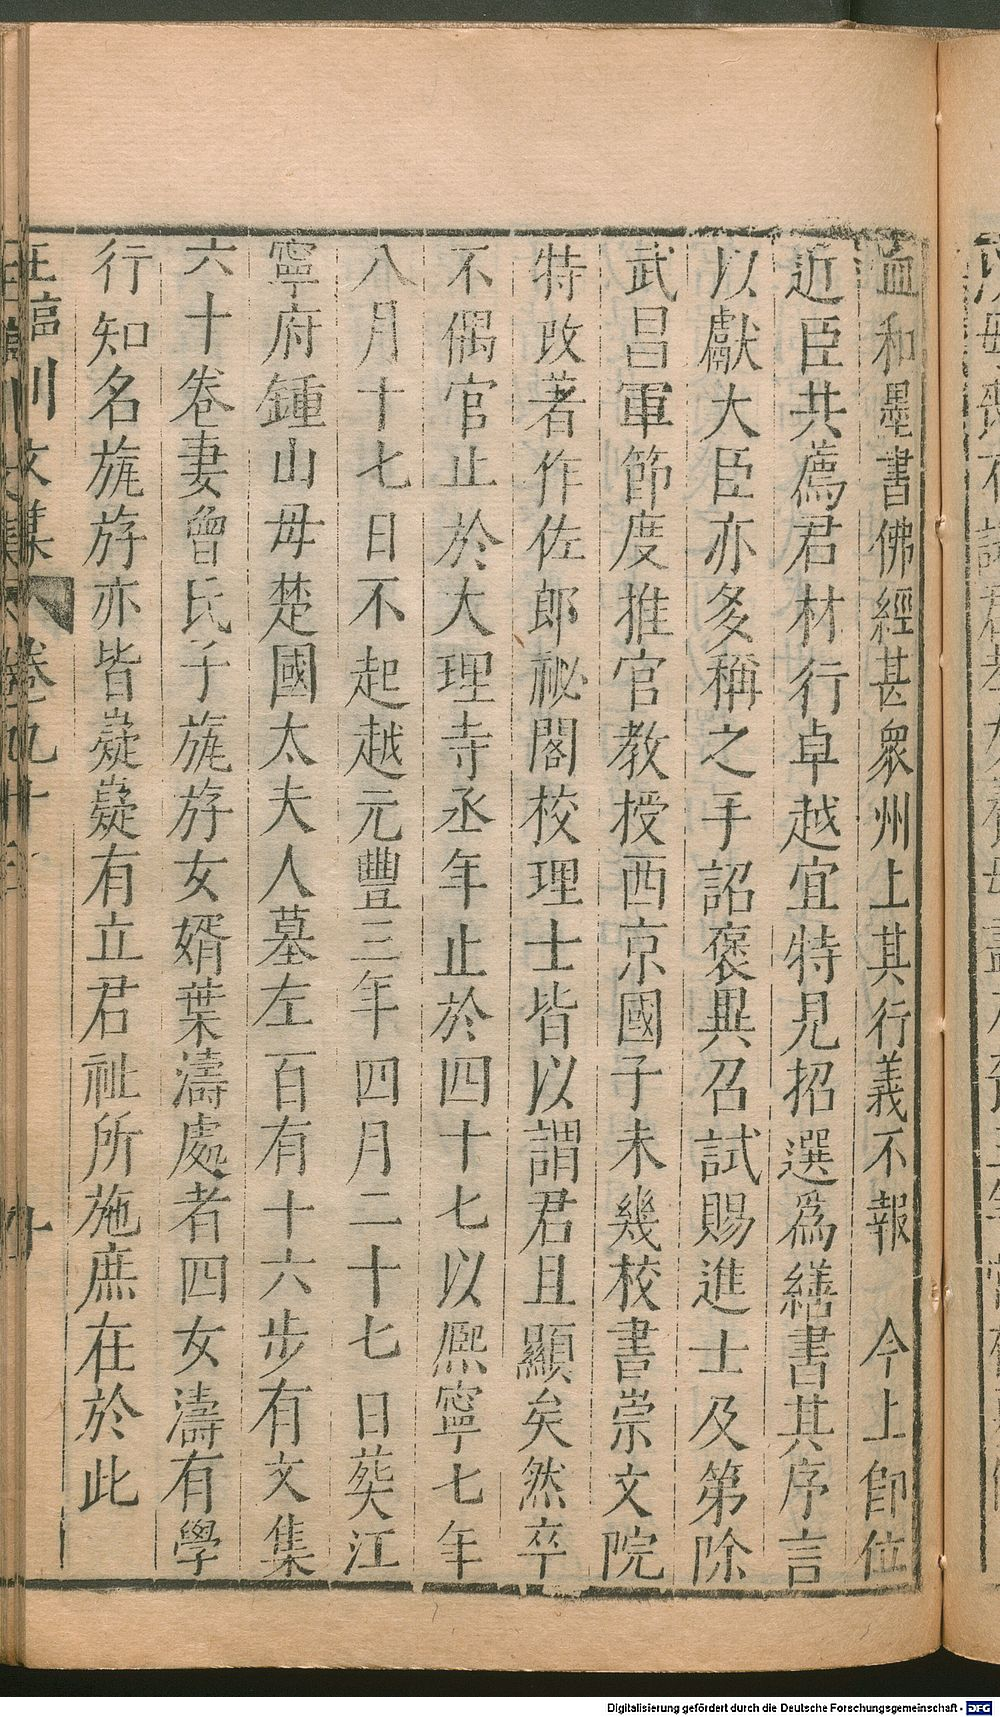 血和墨書佛經甚衆州上其行義不報　今上卽位
近臣共薦君材行卓越宜特見招選爲繕書其序言
以獻大臣亦多稱之手詔褒異召試賜進士及第除
武昌軍節度推官教授西京國子未幾校書崇文院
特改著作佐郎祕閣校理士皆以謂君且顯矣然卒
不偶官止於大理寺丞年止於四十七以熈寧七年
八月十七日不起越元豐三年四月二十七日葬江
寧府鍾山母楚國太夫人墓左百有十六步有文集
六十卷妻曾氏子旊斿女婿葉濤處者四女濤有學
行知名旊斿亦皆嶷嶷有立君祉所施庶在於此
Digitalisierung gefördert durch die Deutsche Forschungsgemeinschaft - DFG